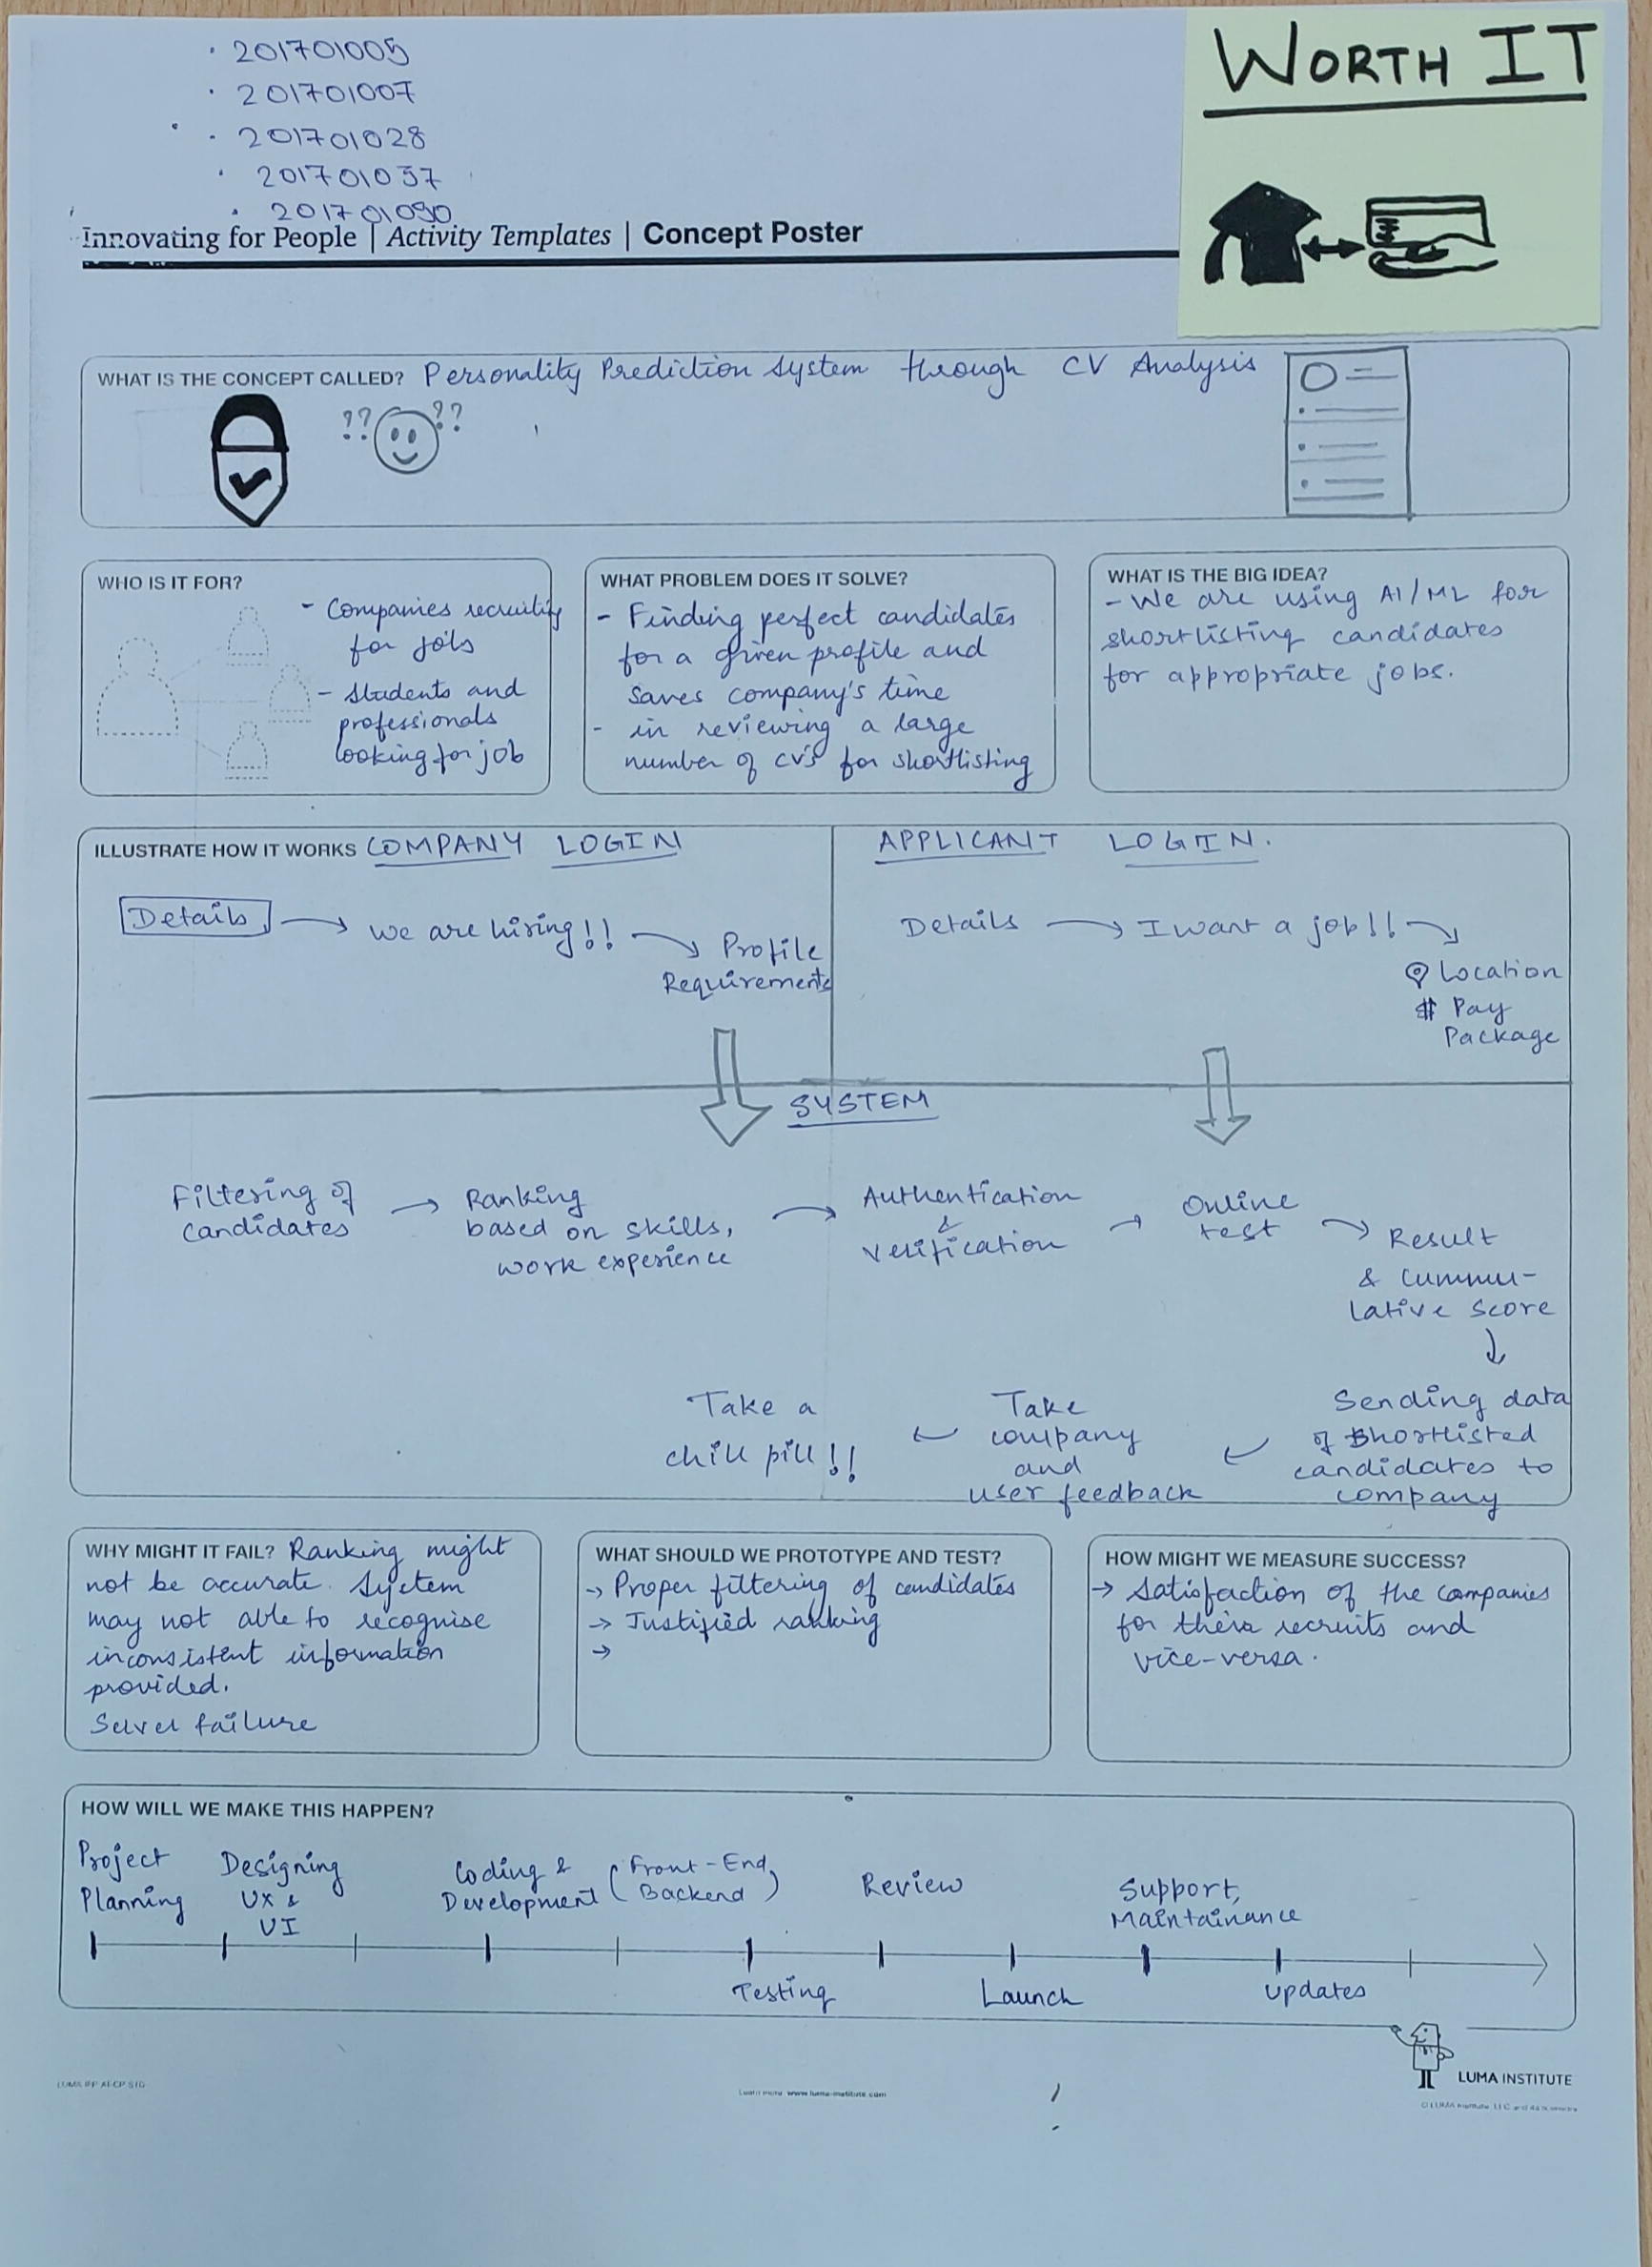 · 201701005
· 201701007
· 201701028
· 201701037
· 201701090
WORTH IT
Innovating for People | Activity Templates | Concept Poster
WHAT IS THE CONCEPT CALLED? Personality Prediction System through CV Analysis
?? ??
WHO IS IT FOR?
- Companies recruiting
for jobs
- Students and
professionals
looking for job
WHAT PROBLEM DOES IT SOLVE?
- Finding perfect candidates
for a given profile and
saves company's time
- in reviewing a large
number of CV's for shortlisting
WHAT IS THE BIG IDEA?
- We are using AI/ML for
shortlisting candidates
for appropriate jobs.
ILLUSTRATE HOW IT WORKS COMPANY LOGIN
Details → we are hiring!! → Profile
Requirements
APPLICANT LOGIN.
Details → I want a job!! →
Location
$ Pay
Package
SYSTEM
Filtering of
candidates
→ Ranking
based on skills,
work experience
→ Authentication
&
verification
→ Online
test
→ Result
& cummu-
lative score
↓
Sending data
of shortlisted
candidates to
company
← Take
company
and
user feedback
← Take a
chill pill!!
WHY MIGHT IT FAIL? Ranking might
not be accurate. System
may not able to recognise
inconsistent information
provided.
Server failure
WHAT SHOULD WE PROTOTYPE AND TEST?
→ Proper filtering of candidates
→ Justified ranking
→
HOW MIGHT WE MEASURE SUCCESS?
→ Satisfaction of the companies
for their recruits and
vice-versa.
HOW WILL WE MAKE THIS HAPPEN?
Project
Planning
Designing
UX &
UI
Coding &
Development
(Front-End,
Backend)
Testing
Review
Launch
Support,
Maintainance
updates
LUMA INSTITUTE
Learn more www.luma-institute.com